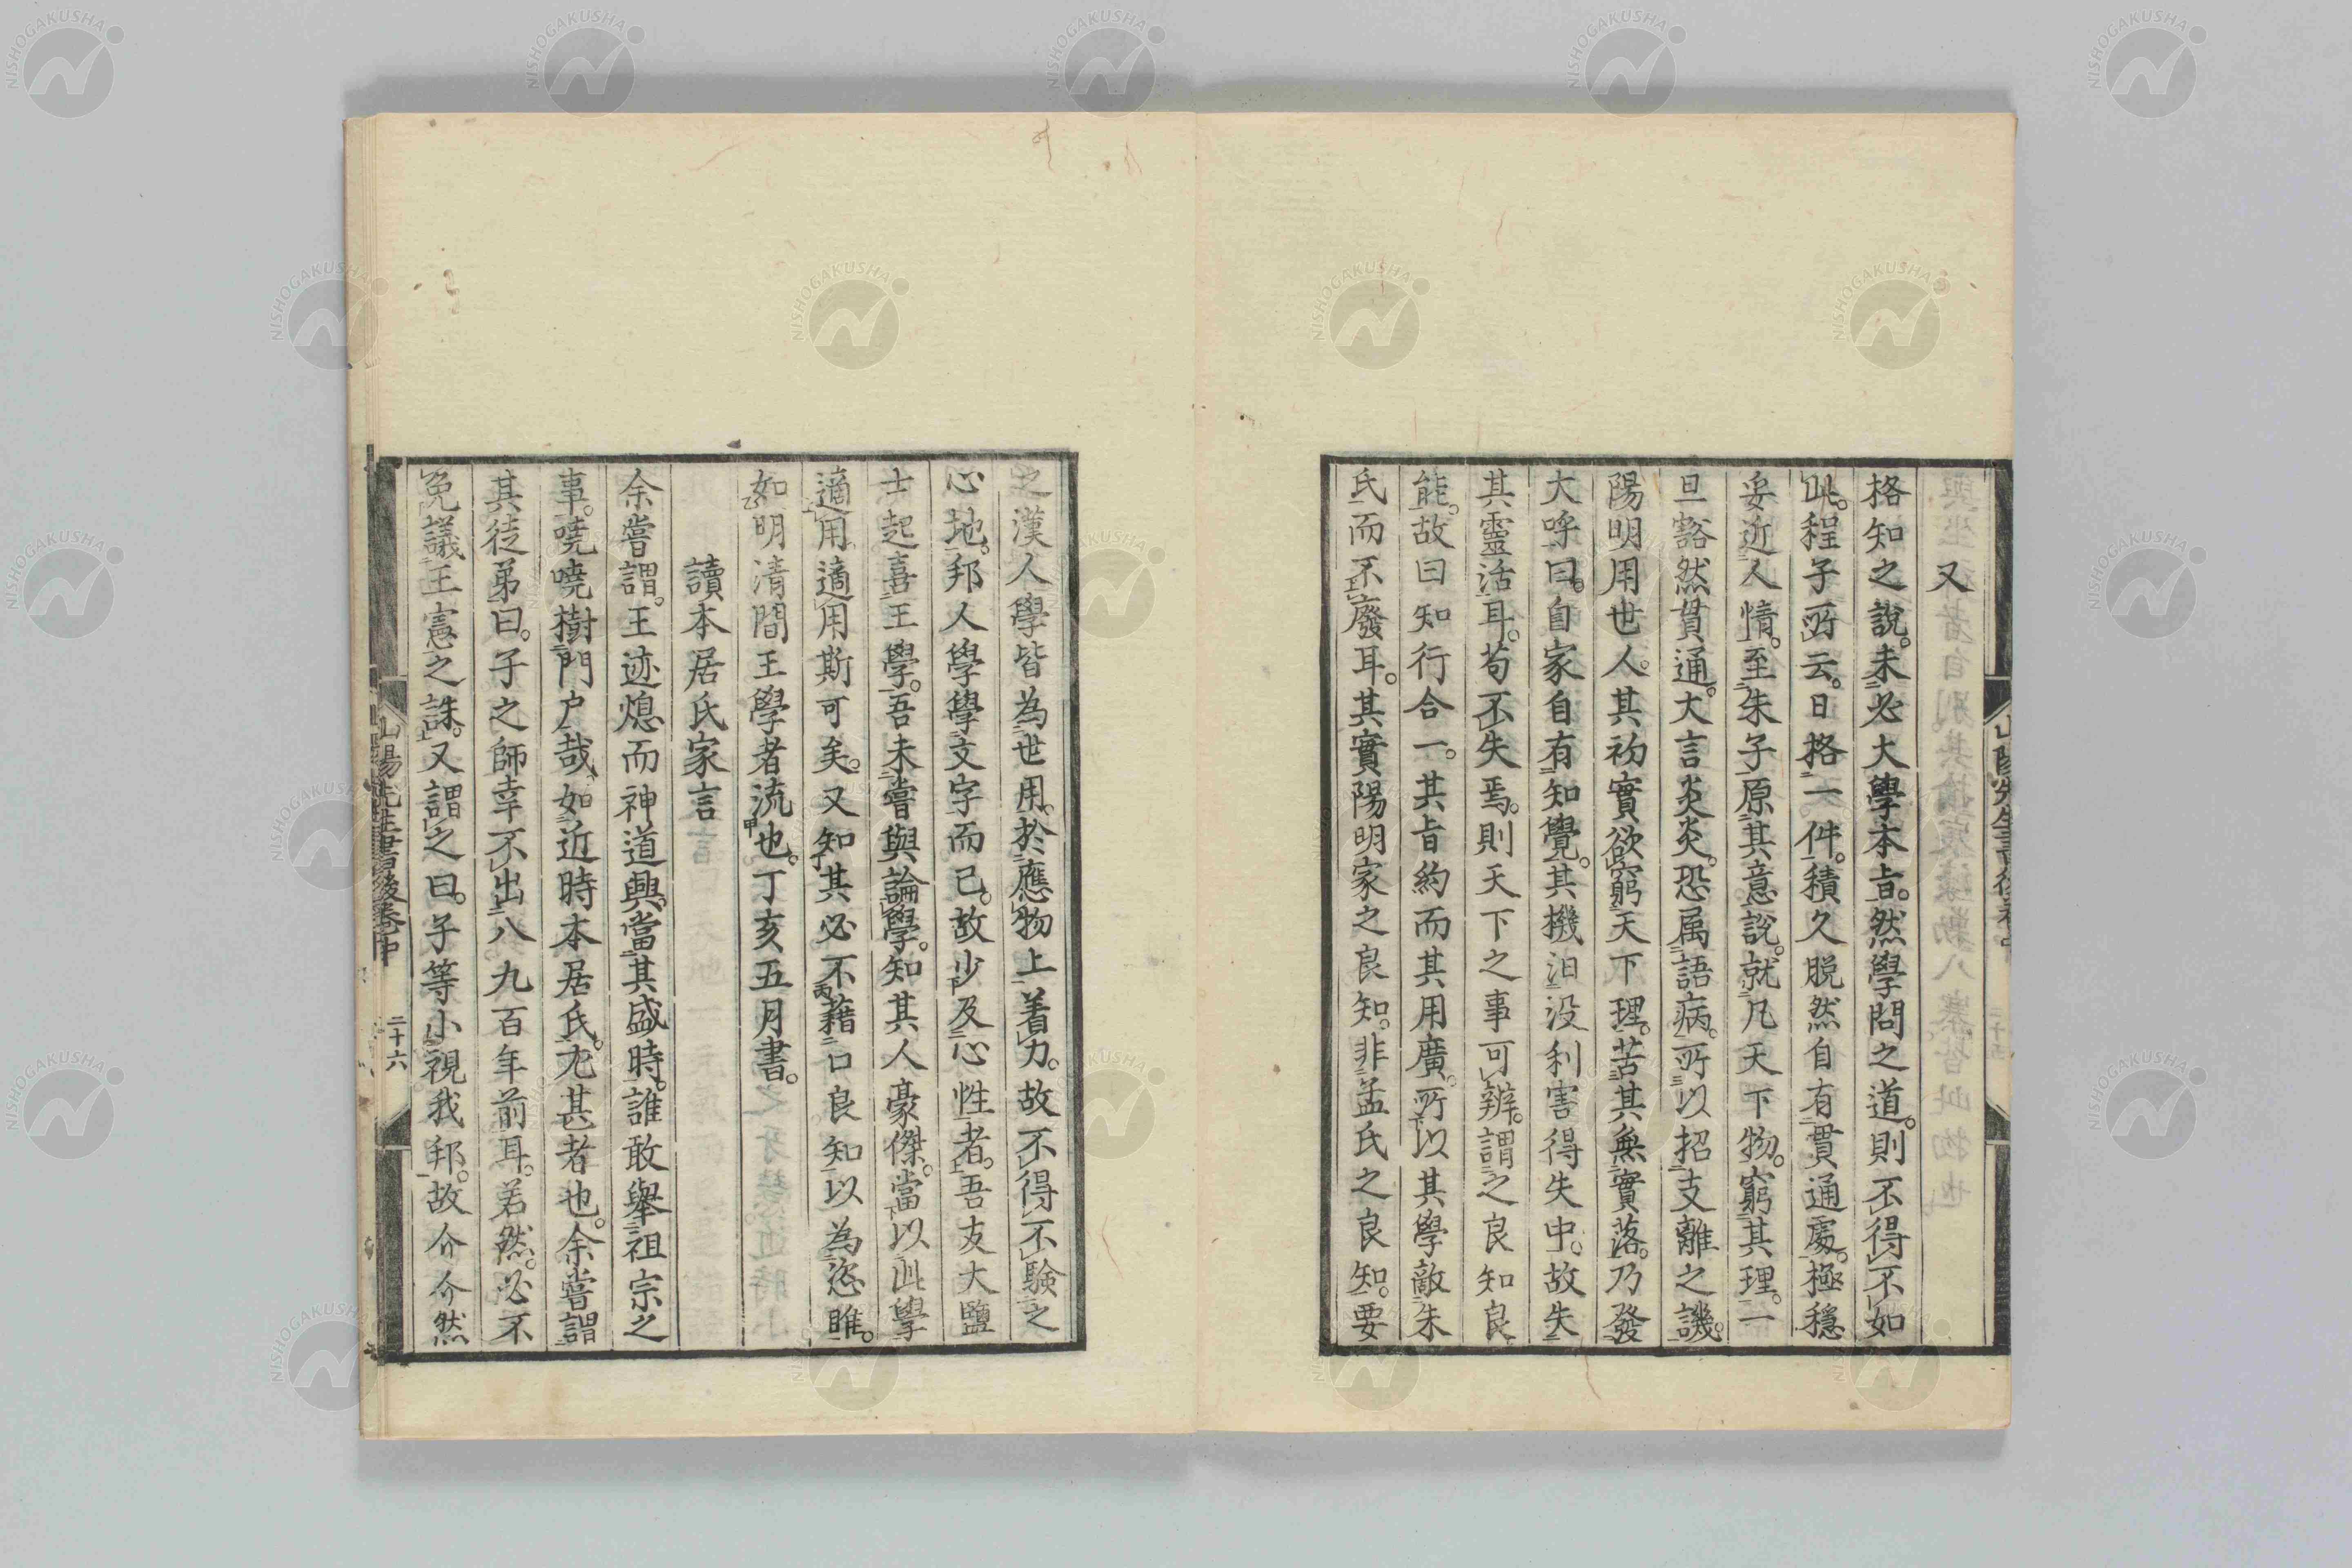 又
格知之說。未必大學本旨。然學問之道。則不得不如
此。程子所云。日格一件。積久脱然自有貫通處。極穩
妥近人情。至朱子原其意說。就凡天下物。窮其理。一
旦豁然貫通。大言炎炎。恐属語病。所以招支離之譏。
陽明用世人。其初實欲窮天下理。苦其無實落。乃發
大呼曰。自家自有知覺。其機汨没利害得失中。故失
其靈活耳。苟不失焉。則天下之事可辨。謂之良知良
能。故曰知行合一。其旨約而其用廣。所以其學敵朱
氏而不廢耳。其實陽明家之良知。非孟氏之良知。要
之漢人學皆為世用。於應物上着力。故不得不驗之
心地。邦人學學文字而已。故少及心性者。吾友大鹽
士起喜王學。吾未嘗與論學。知其人豪傑。當以此學
適用適用斯可矣。又知其必不藉口良知以為恣睢。
如明清間王學者流也。丁亥五月書。
讀本居氏家言
余嘗謂。王迹熄而神道興。當其盛時。誰敢舉祖宗之
事。嘵嘵樹門户哉。如近時本居氏。尤甚者也。余嘗謂
其徒弟曰。子之師幸不出八九百年前耳。若然。必不
免議王憲之誅。又謂之曰。子等小視我邦。故介介然
山陽先生書後卷中
二十六
NISHOGAKUSHA